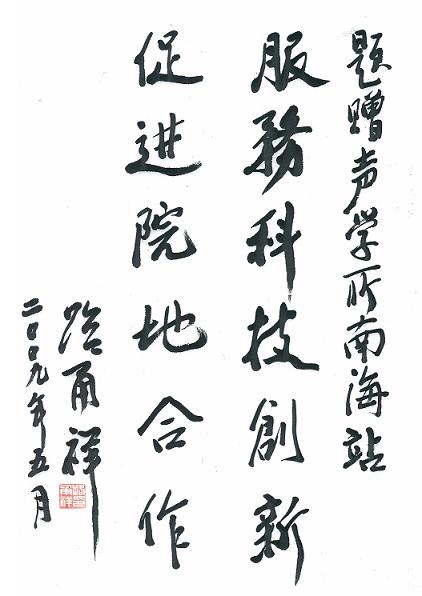 题赠声学所南海站
服務科技創新
促进院地合作
路甬祥
二〇〇九年五月